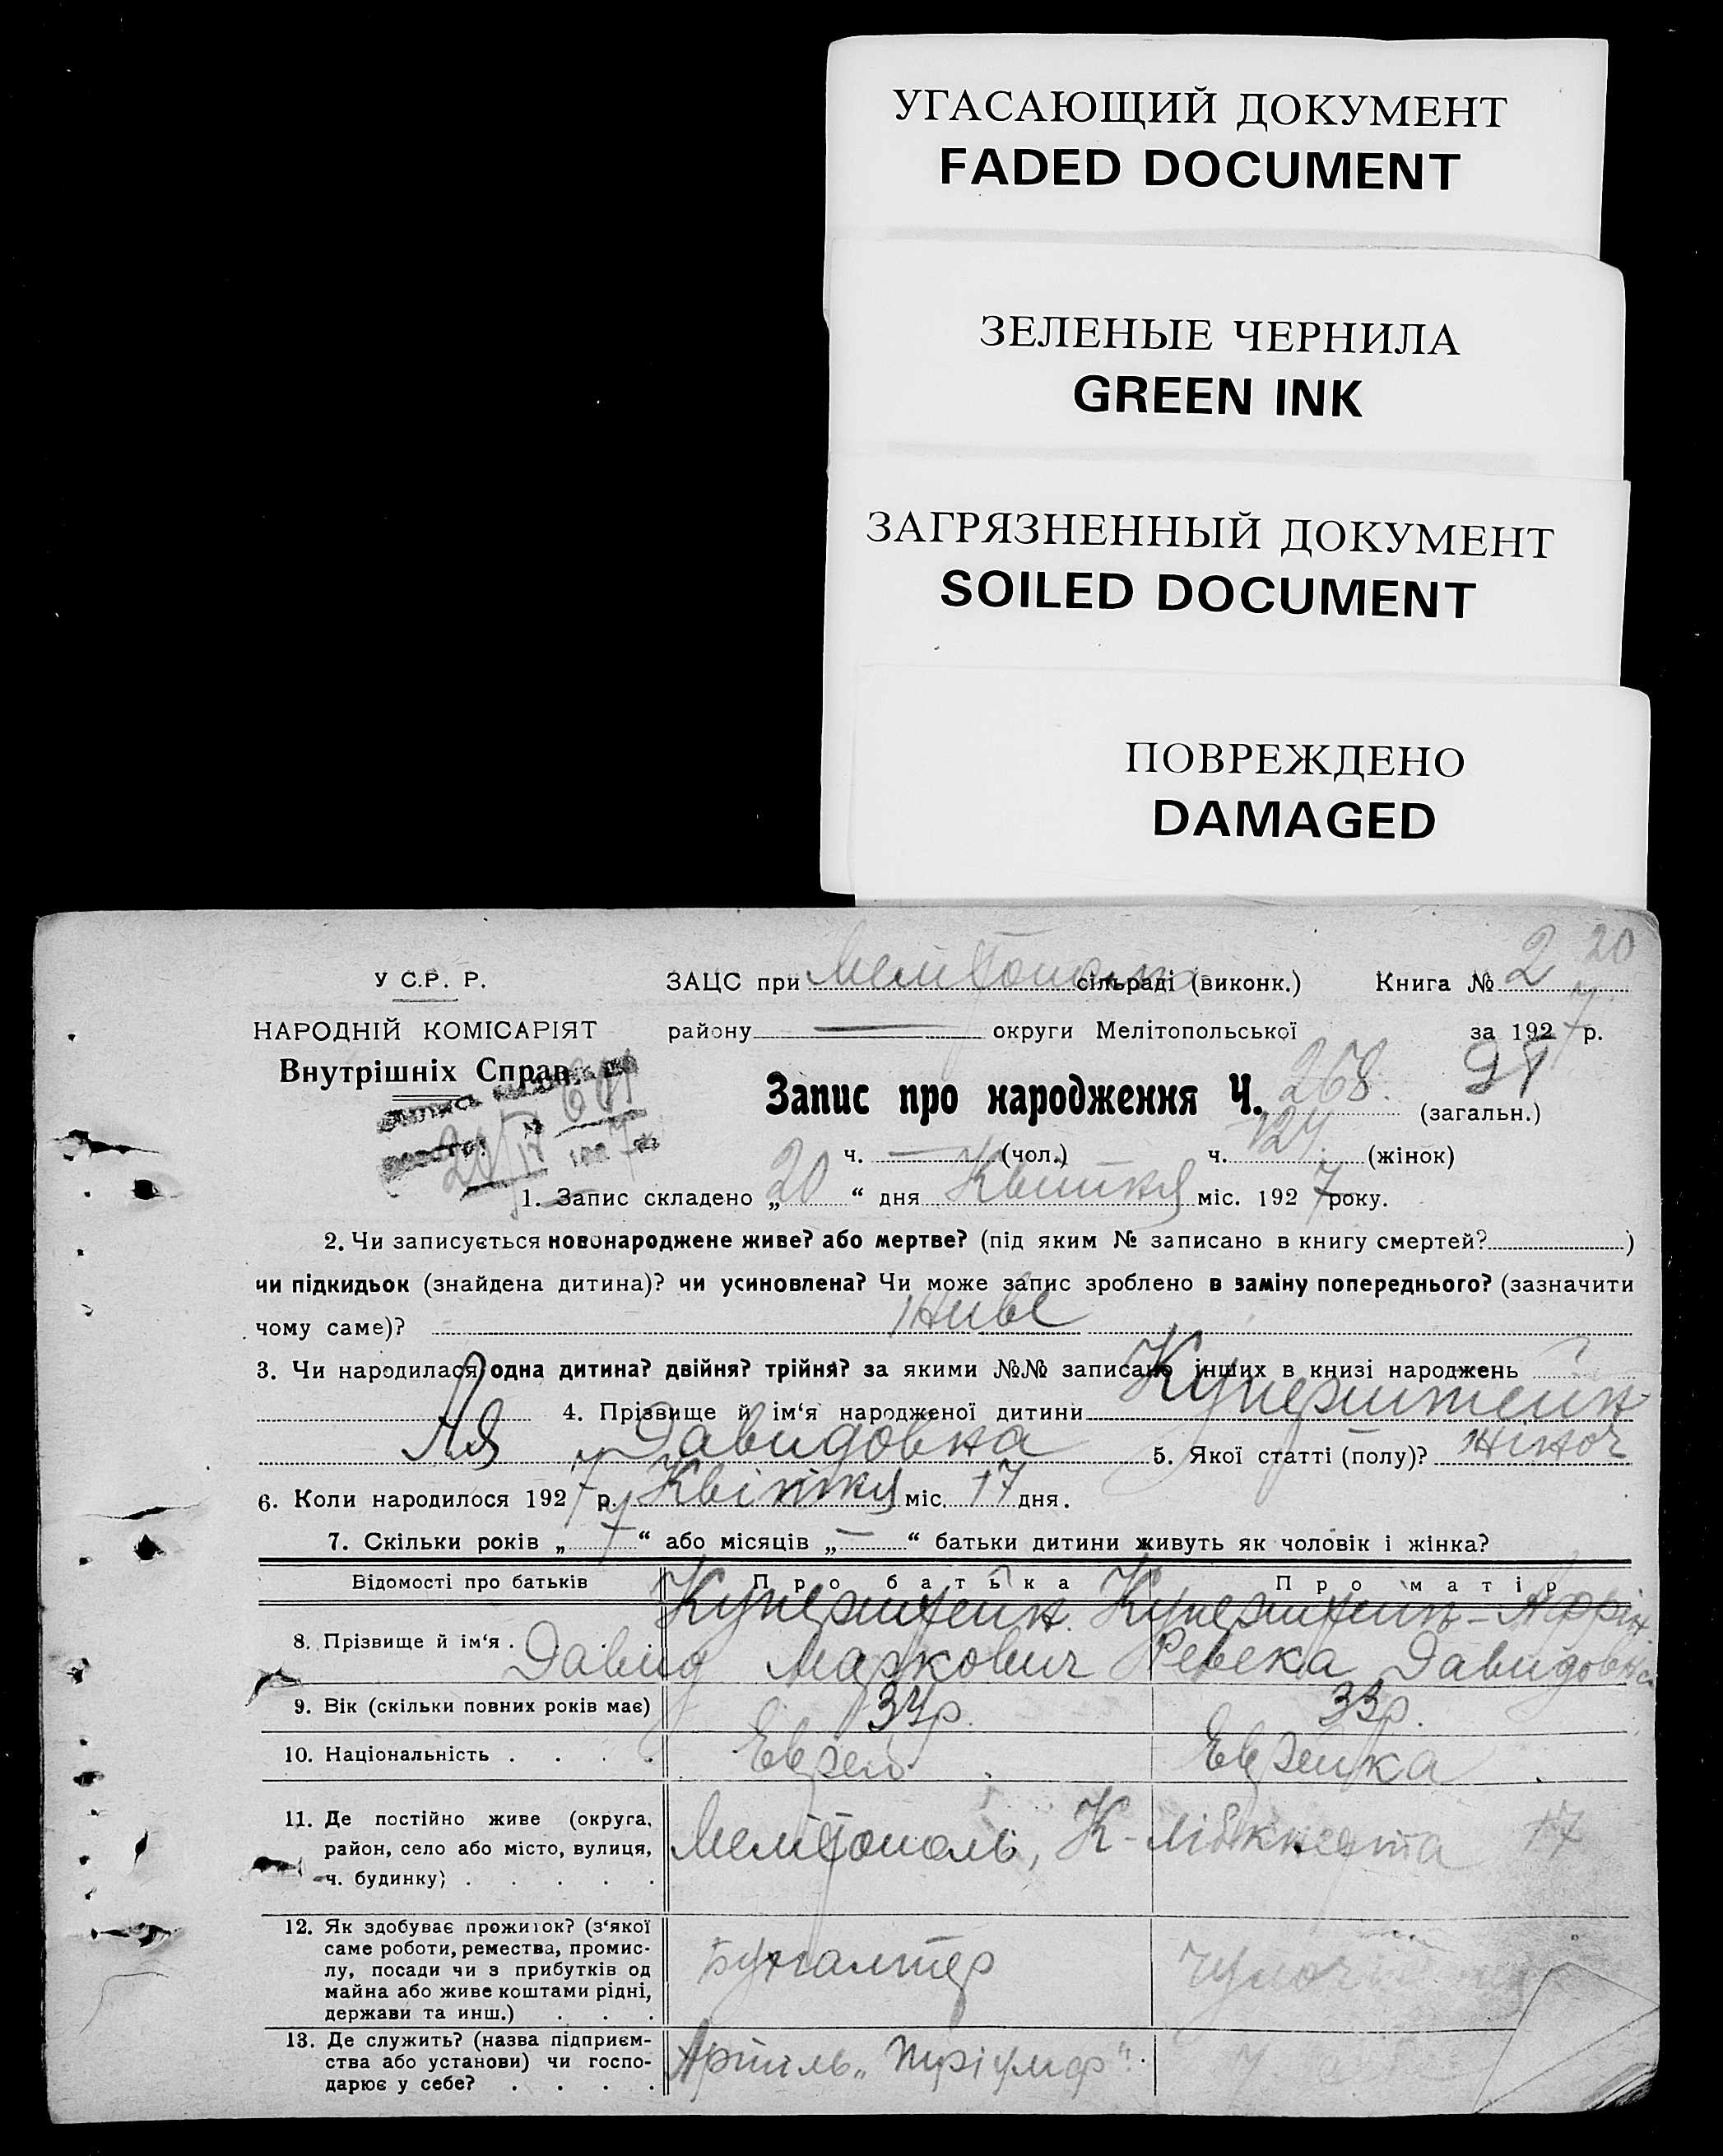 УГАСАЮЩИЙ ДОКУМЕНТ
FADED DOCUMENT
ЗЕЛЕНЫЕ ЧЕРНИЛА
GREEN INK
ЗАГРЯЗНЕННЫЙ ДОКУМЕНТ
SOILED DOCUMENT
ПОВРЕЖДЕНО
DAMAGED
20
У С.Р. Р.
ЗАЦС при сільраді (виконк.) Книга № 2
НАРОДНІЙ КОМІСАРІЯТ
району — округи Мелітопольської за 1927 р.
Внутрішніх Справ.
Запис про народження Ч. 268. (загальн.)
ч. — (чол.) ч. 124 (жінок)
1. Запис складено „20“ дня Квитня міс. 1927 року.
2. Чи записується новонароджене живе? або мертве? (під яким № записано в книгу смертей? )
чи підкидьок (знайдена дитина)? чи усиновлена? Чи може запис зроблено в заміну попереднього? (зазначити
чому саме)? Живе
3. Чи народилася одна дитина? двійня? трійня? за якими №№ записано інших в книзі народжень
4. Прізвище й ім‘я народженої дитини Куперштейн
Ия Давидовна 5. Якої статті (полу)? жіноч
6. Коли народилося 1927 р. Квітня міс. 17 дня.
7. Скільки років „7“ або місяців „—“ батьки дитини живуть як чоловік і жінка?
Відомості про батьків Про батька Про матір
8. Прізвище й ім‘я . Куперштейн Давид Маркович Куперштейн- Ревека Давидовна
9. Вік (скільки повних років має) 34р. 33р.
10. Національність . . . . Еврей Еврейка
11. Де постійно живе (округа,
район, село або місто, вулиця,
ч. будинку) . . . . . Мелітополь, К-Лібкнехта 17
12. Як здобуває прожиток? (з‘якої
саме роботи, ремества, промис-
лу, посади чи з прибутків од
майна або живе коштами рідні,
держави та инш.) . . . Бухгалтер
13. Де служить? (назва підприєм-
ства або установи) чи госпо-
дарює у себе? . . . . Артіль „Тріумф“.